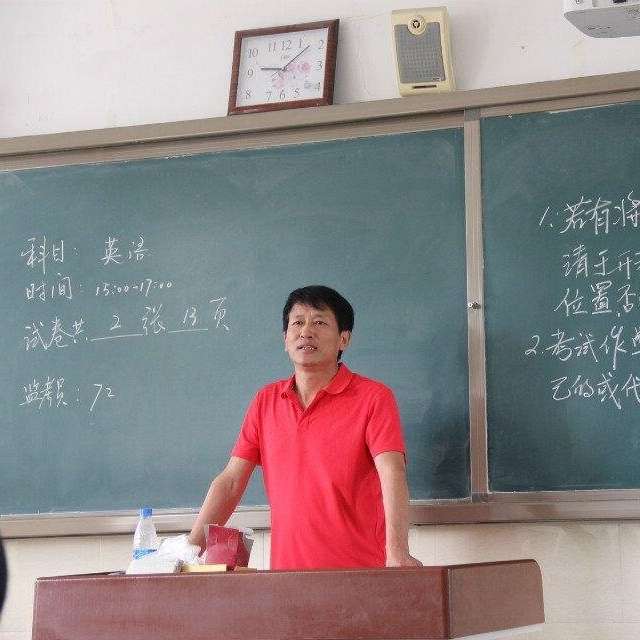 10 11 12 1 2
9 3
8 7 6 5 4
科目: 英语
时间: 15:00-17:00
试卷共 2 张 13 页
监 : 72
1.若有将
请于
位置否
2.考试作
己的或代